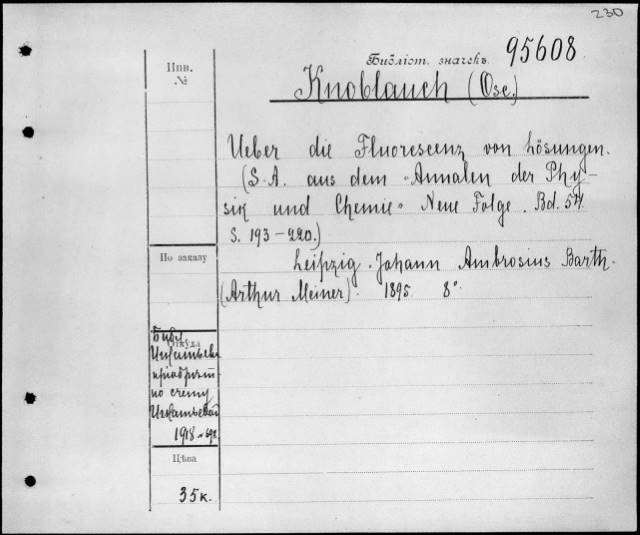 230
Библіот. значекъ. 95608
Инв.
№
Knoblauch (Osc.)
Ueber die Fluorescenz von Lösungen.
(S. A. aus dem "Annalen der Phy-
sik und Chemie" Neue Folge. Bd. 54.
S. 193-220.)
По заказу
Leipzig. Johann Ambrosius Barth.
(Arthur Meiner). 1895. 8°.
Откуда
Библ.
по счету
1918
Цѣна
35к.